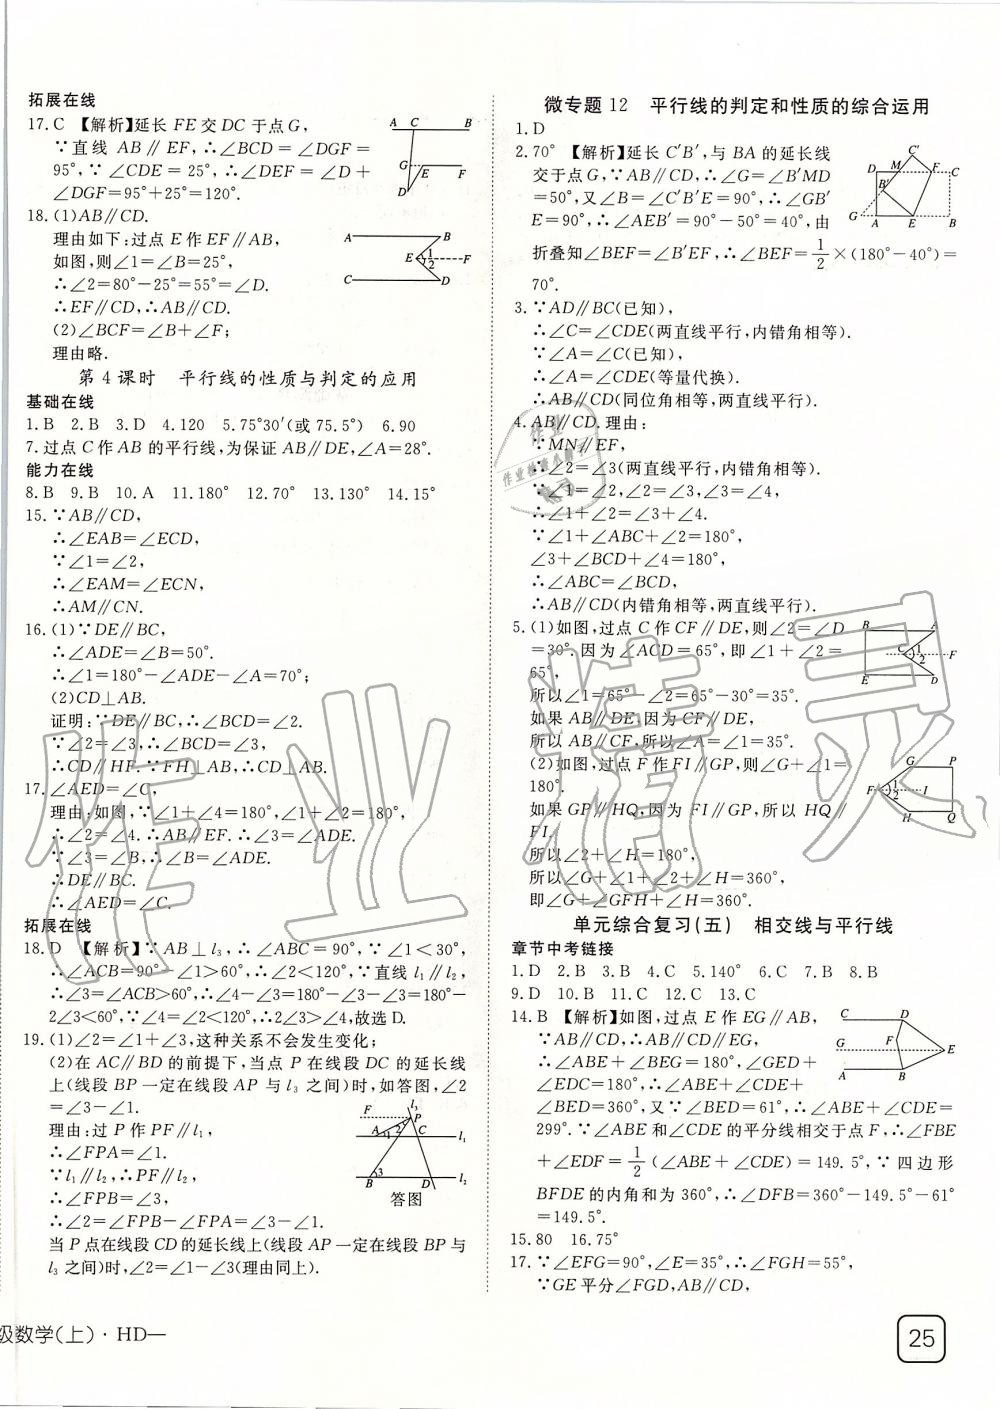 拓展在线
17. C 【解析】延长 FE 交 DC 于点 G,
∵直线 AB∥EF,∴∠BCD=∠DGF=
95°,∵∠CDE=25°,∴∠DEF=∠D+
∠DGF=95°+25°=120°.
A C B
G E F
D
18. (1)AB∥CD.
理由如下:过点 E 作 EF∥AB,
如图,则∠1=∠B=25°,
∴∠2=80°-25°=55°=∠D.
∴EF∥CD,∴AB∥CD.
(2)∠BCF=∠B+∠F;
理由略.
A B
E 1 2 F
C D
第 4 课时 平行线的性质与判定的应用
基础在线
1. B 2. B 3. D 4. 120 5. 75°30′(或 75.5°) 6. 90
7. 过点 C 作 AB 的平行线,为保证 AB∥DE,∠A=28°.
能力在线
8. B 9. B 10. A 11. 180° 12. 70° 13. 130° 14. 15°
15. ∵AB∥CD,
∴∠EAB=∠ECD,
∵∠1=∠2,
∴∠EAM=∠ECN,
∴AM∥CN.
16. (1)∵DE∥BC,
∴∠ADE=∠B=50°.
∴∠1=180°-∠ADE-∠A=70°;
(2)CD⊥AB.
证明:∵DE∥BC,∴∠BCD=∠2.
∵∠2=∠3,∴∠BCD=∠3,
∴CD∥HF.∵FH⊥AB,∴CD⊥AB.
17. ∠AED=∠C,
理由:如图,∵∠1+∠4=180°,∠1+∠2=180°,
∴∠2=∠4.∴AB∥EF.∴∠3=∠ADE.
∵∠3=∠B,∴∠B=∠ADE.
∴DE∥BC.
∴∠AED=∠C.
拓展在线
18. D 【解析】∵AB⊥l₃,∴∠ABC=90°,∵∠1<30°,
∴∠ACB=90°-∠1>60°,∴∠2<120°,∵直线 l₁∥l₂,
∴∠3=∠ACB>60°,∴∠4-∠3=180°-∠3=180°-
2∠3<60°,∵∠4=∠2<120°,∴2∠3>∠4,故选 D.
19. (1)∠2=∠1+∠3,这种关系不会发生变化;
(2)在 AC∥BD 的前提下,当点 P 在线段 DC 的延长线
上(线段 BP 一定在线段 AP 与 l₃ 之间)时,如答图,∠2
=∠3-∠1.
理由:过 P 作 PF∥l₁,
∴∠FPA=∠1.
∵l₁∥l₂,∴PF∥l₂,
∴∠FPB=∠3,
∴∠2=∠FPB-∠FPA=∠3-∠1.
当 P 点在线段 CD 的延长线上(线段 AP 一定在线段 BP 与
l₃ 之间)时,∠2=∠1-∠3(理由同上).
l₃
F P
A 1 2 C l₁
3
B D l₂
答图
级数学(上)·HD—
微专题 12 平行线的判定和性质的综合运用
1. D
2. 70° 【解析】延长 C′B′,与 BA 的延长线
交于点 G,∵AB∥CD,∴∠G=∠B′MD
=50°,又∠B=∠C′B′E=90°,∴∠GB′
E=90°,∴∠AEB′=90°-50°=40°,由
折叠知∠BEF=∠B′EF,∴∠BEF=1/2×(180°-40°)=
70°.
C′
D M F C
B′
G A E B
3. ∵AD∥BC(已知),
∴∠C=∠CDE(两直线平行,内错角相等).
∵∠A=∠C(已知),
∴∠A=∠CDE(等量代换).
∴AB∥CD(同位角相等,两直线平行).
4. AB∥CD.理由:
∵MN∥EF,
∴∠2=∠3(两直线平行,内错角相等).
∵∠1=∠2,∠3=∠4,
∴∠1+∠2=∠3+∠4.
∵∠1+∠ABC+∠2=180°,
∠3+∠BCD+∠4=180°,
∴∠ABC=∠BCD,
∴AB∥CD(内错角相等,两直线平行).
5. (1)如图,过点 C 作 CF∥DE,则∠2=∠D
=30°.因为∠ACD=65°,即∠1+∠2=
65°,
所以∠1=65°-∠2=65°-30°=35°.
如果 AB∥DE,因为 CF∥DE,
所以 AB∥CF,所以∠A=∠1=35°.
B A
C 1 2 F
E D
(2)如图,过点 F 作 FI∥GP,则∠G+∠1=
180°.
如果 GP∥HQ,因为 FI∥GP,所以 HQ∥
FI,
所以∠2+∠H=180°,
所以∠G+∠1+∠2+∠H=360°,
即∠G+∠GFH+∠H=360°.
G P
F 1 2 I
H Q
单元综合复习(五) 相交线与平行线
章节中考链接
1. D 2. B 3. B 4. C 5. 140° 6. C 7. B 8. B
9. D 10. B 11. C 12. C 13. C
14. B 【解析】如图,过点 E 作 EG∥AB,
∵AB∥CD,∴AB∥CD∥EG,
∴∠ABE+∠BEG=180°,∠GED+
∠EDC=180°,∴∠ABE+∠CDE+
∠BED=360°,又∵∠BED=61°,∴∠ABE+∠CDE=
299°.∵∠ABE 和∠CDE 的平分线相交于点 F,∴∠FBE
+∠EDF=1/2(∠ABE+∠CDE)=149.5°,∵四边形
BFDE 的内角和为 360°,∴∠DFB=360°-149.5°-61°
=149.5°.
C D
G F E
A B
15. 80 16. 75°
17. ∵∠EFG=90°,∠E=35°,∴∠FGH=55°,
∵GE 平分∠FGD,AB∥CD,
25
作业精灵